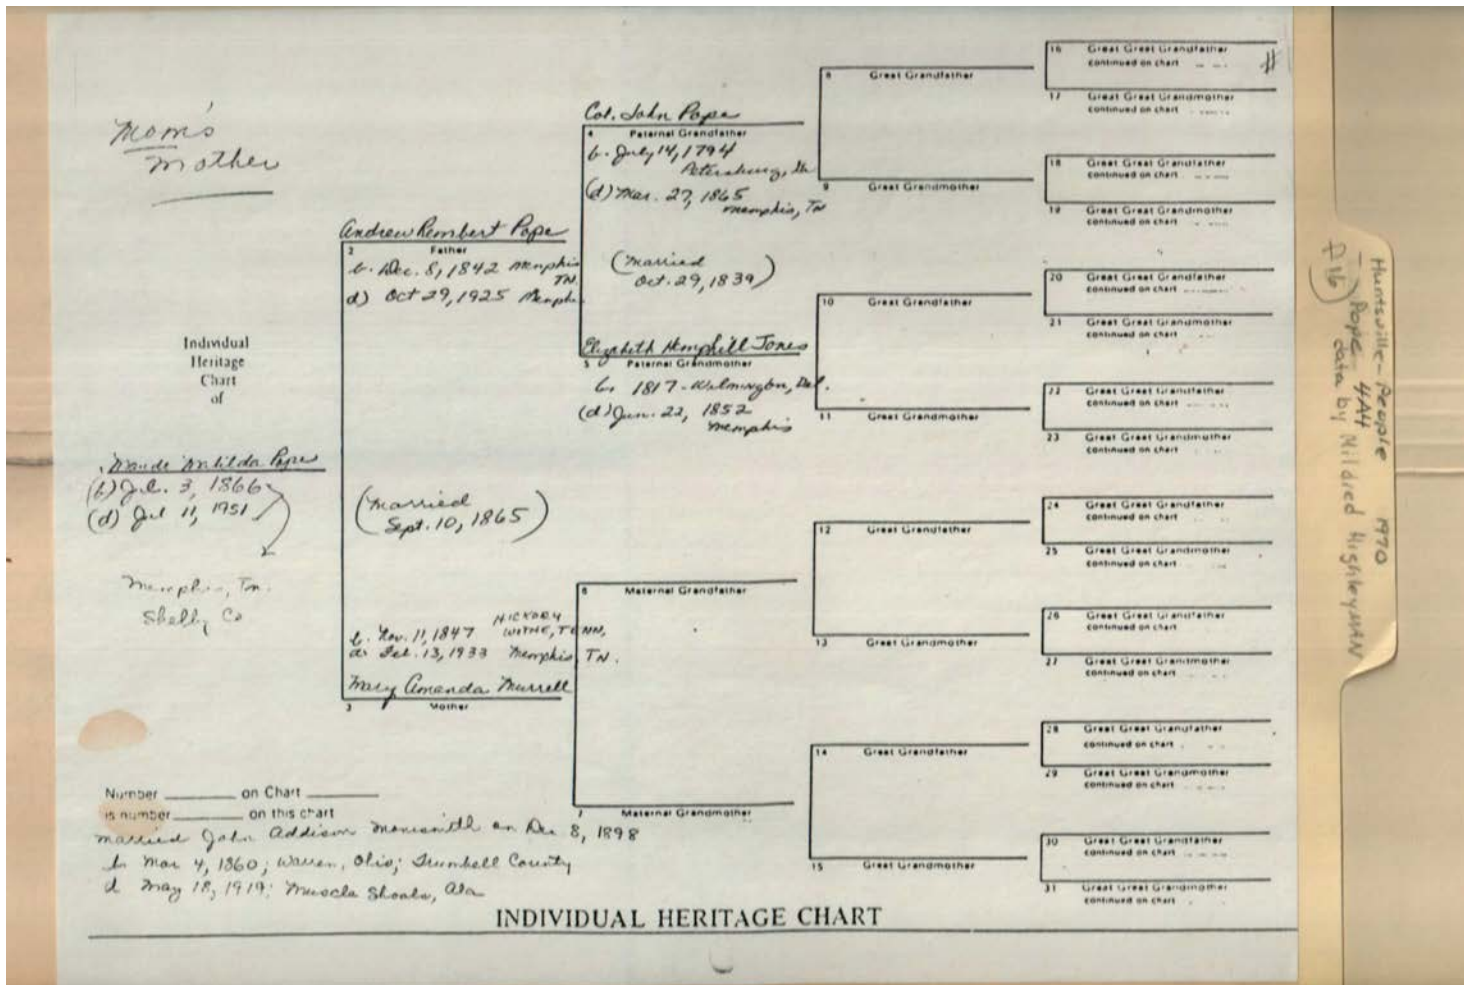 Mom's
Mother
Individual
Heritage
Chart
of
Maude Matilda Pope
(b) Jul. 3, 1866
(d) Jul 11, 1951
Memphis, Tn.
Shelby Co
Andrew Rembert Pope
2 Father
b. Dec. 8, 1842 Memphis
TN.
d) Oct 29, 1925 Memph.
(Married
Sept. 10, 1865)
HICKORY
b. Nov. 11, 1847 WITHE, TENN,
d. Feb. 13, 1933 Memphis, TN.
Mary Amanda Murrell
3 Mother
Col. John Pope
4 Paternal Grandfather
b. July 14, 1794
Petersburg,
(d) Mar. 27, 1865
Memphis, TN
(Married
Oct. 29, 1839)
Elizabeth Hemphill Jones
5 Paternal Grandmother
b. 1817 - Wilmington, Del.
(d) Jun. 22, 1852
Memphis
6 Maternal Grandfather
7 Maternal Grandmother
8 Great Grandfather
9 Great Grandmother
10 Great Grandfather
11 Great Grandmother
12 Great Grandfather
13 Great Grandmother
14 Great Grandfather
15 Great Grandmother
16 Great Great Grandfather
continued on chart
#
17 Great Great Grandmother
continued on chart
18 Great Great Grandfather
continued on chart
19 Great Great Grandmother
continued on chart
20 Great Great Grandfather
continued on chart
21 Great Great Grandmother
continued on chart
22 Great Great Grandfather
continued on chart
23 Great Great Grandmother
continued on chart
24 Great Great Grandfather
continued on chart
25 Great Great Grandmother
continued on chart
26 Great Great Grandfather
continued on chart
27 Great Great Grandmother
continued on chart
28 Great Great Grandfather
continued on chart
29 Great Great Grandmother
continued on chart
30 Great Great Grandfather
continued on chart
31 Great Great Grandmother
continued on chart
Number ______ on Chart ______
is number ______ on this chart
married John Addison Monismith on Dec 8, 1898
b Mar 4, 1860; Warren, Ohio; Trumbell County
d May 18, 1919; Muscle Shoals, Ala
INDIVIDUAL HERITAGE CHART
Huntsville - People 1970
Pope 4A4
data by Mildred HighleyMAN
P 16